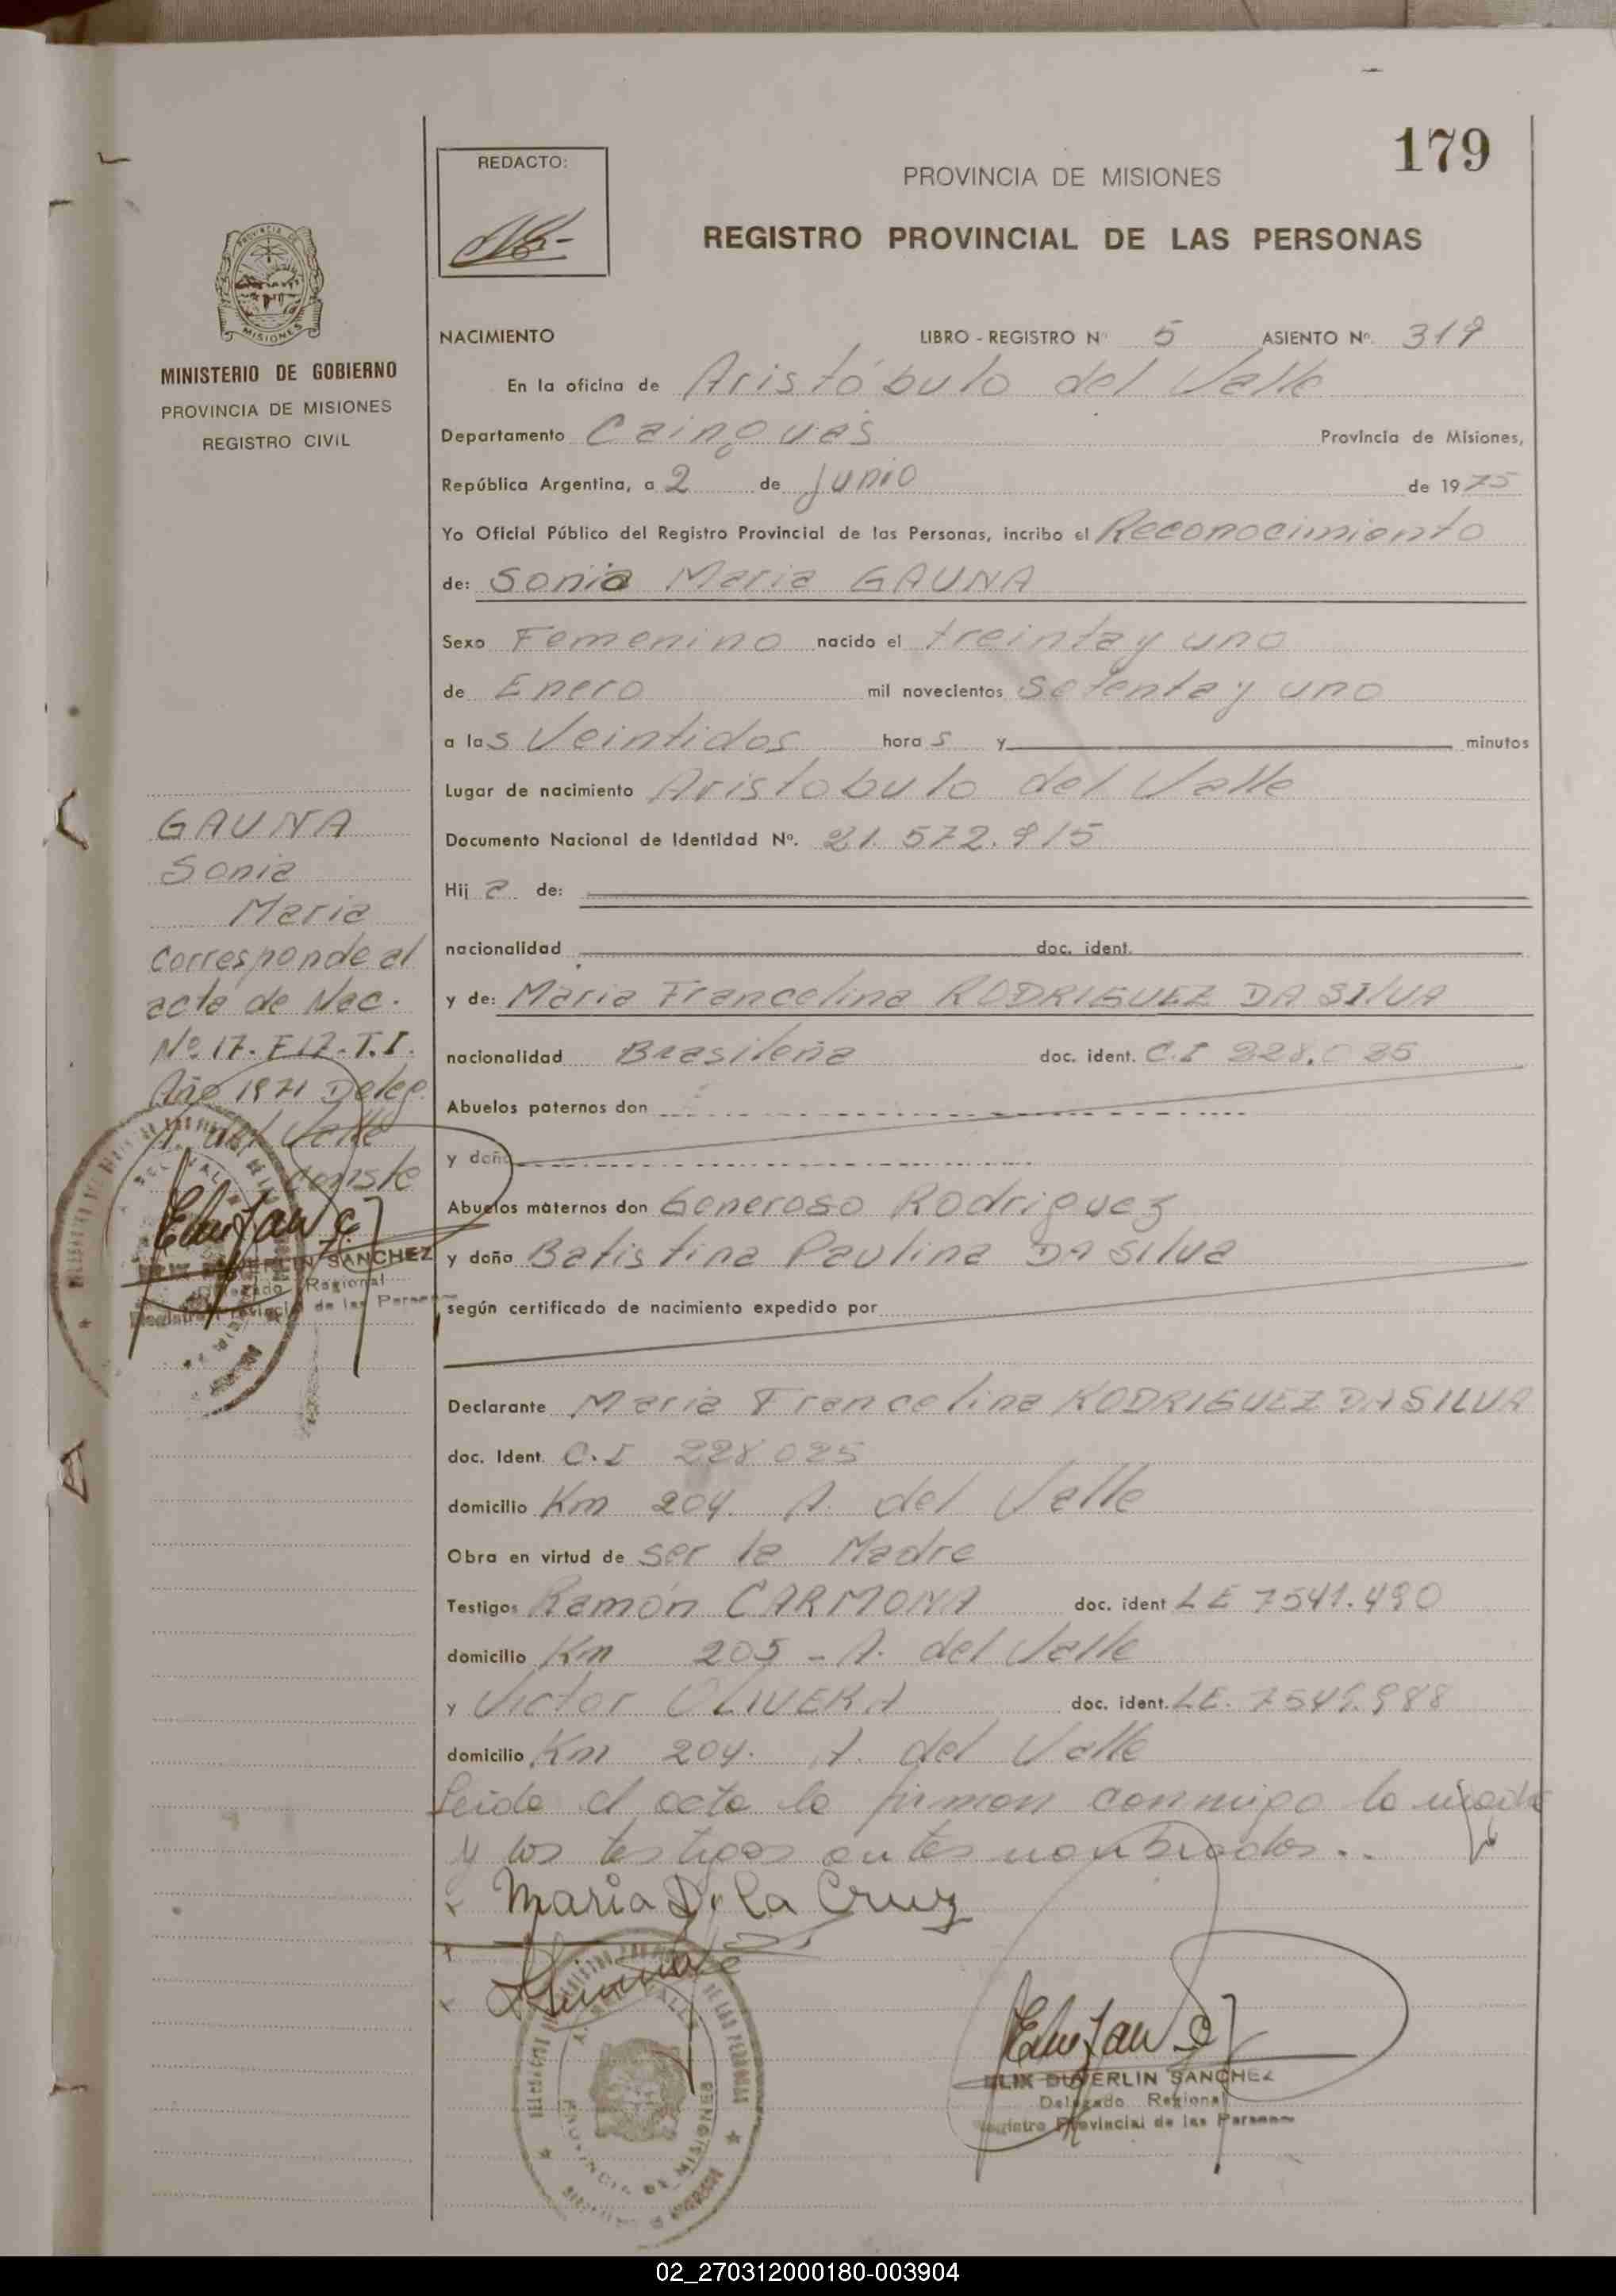 179
REDACTO:
PROVINCIA DE MISIONES
REGISTRO PROVINCIAL DE LAS PERSONAS
PROVINCIA DE
MISIONES
MINISTERIO DE GOBIERNO
PROVINCIA DE MISIONES
REGISTRO CIVIL
NACIMIENTO LIBRO - REGISTRO Nº 5 ASIENTO Nº. 319
En la oficina de Aristóbulo del Valle
Departamento Cainguas Provincia de Misiones,
República Argentina, a 2 de Junio de 1975
Yo Oficial Público del Registro Provincial de las Personas, incribo el Reconocimiento
de: Sonia Maria GAUNA
Sexo Femenino nacido el treinta y uno
de Enero mil novecientos setenta y uno
a las Veintidos horas y minutos
Lugar de nacimiento Aristobulo del Valle
Documento Nacional de Identidad Nº. 21.572.915
Hija de:
nacionalidad doc. ident.
y de: Maria Francelina RODRIGUEZ DA SILVA
nacionalidad Brasileña doc. ident. C.I 228.025
Abuelos paternos don
y doña
Abuelos maternos don Generoso Rodriguez
y doña Batistina Paulina DA Silva
según certificado de nacimiento expedido por
Declarante Maria Francelina RODRIGUEZ DA SILVA
doc. Ident. C.I 228025
domicilio Km 204. A. del Valle
Obra en virtud de ser la Madre
Testigos Ramón CARMONA doc. ident LE 7541.490
domicilio Km 205 - A. del Valle
y Victor OLIVERA doc. ident. LE. 7549.988
domicilio Km 204. A. del Valle
Leida el acta la firman conmigo la
y los testigos antes nombrados..
Maria D. la Cruz
GAUNA
Sonia
Maria
Corresponde al
acta de Nac.
Nº 17. F17. T.I.
Año 1971 Deleg.
A. del Valle
conste
DUVERLIN SANCHEZ
Delegado Regional
Registro Provincial de las Person
A. DEL VALLE
DE LAS PERSONAS
PROVINCIA DE MISIONES
ELIX DUVERLIN SANCHEZ
Delegado Regional
Registro Provincial de las Person
02_270312000180-003904